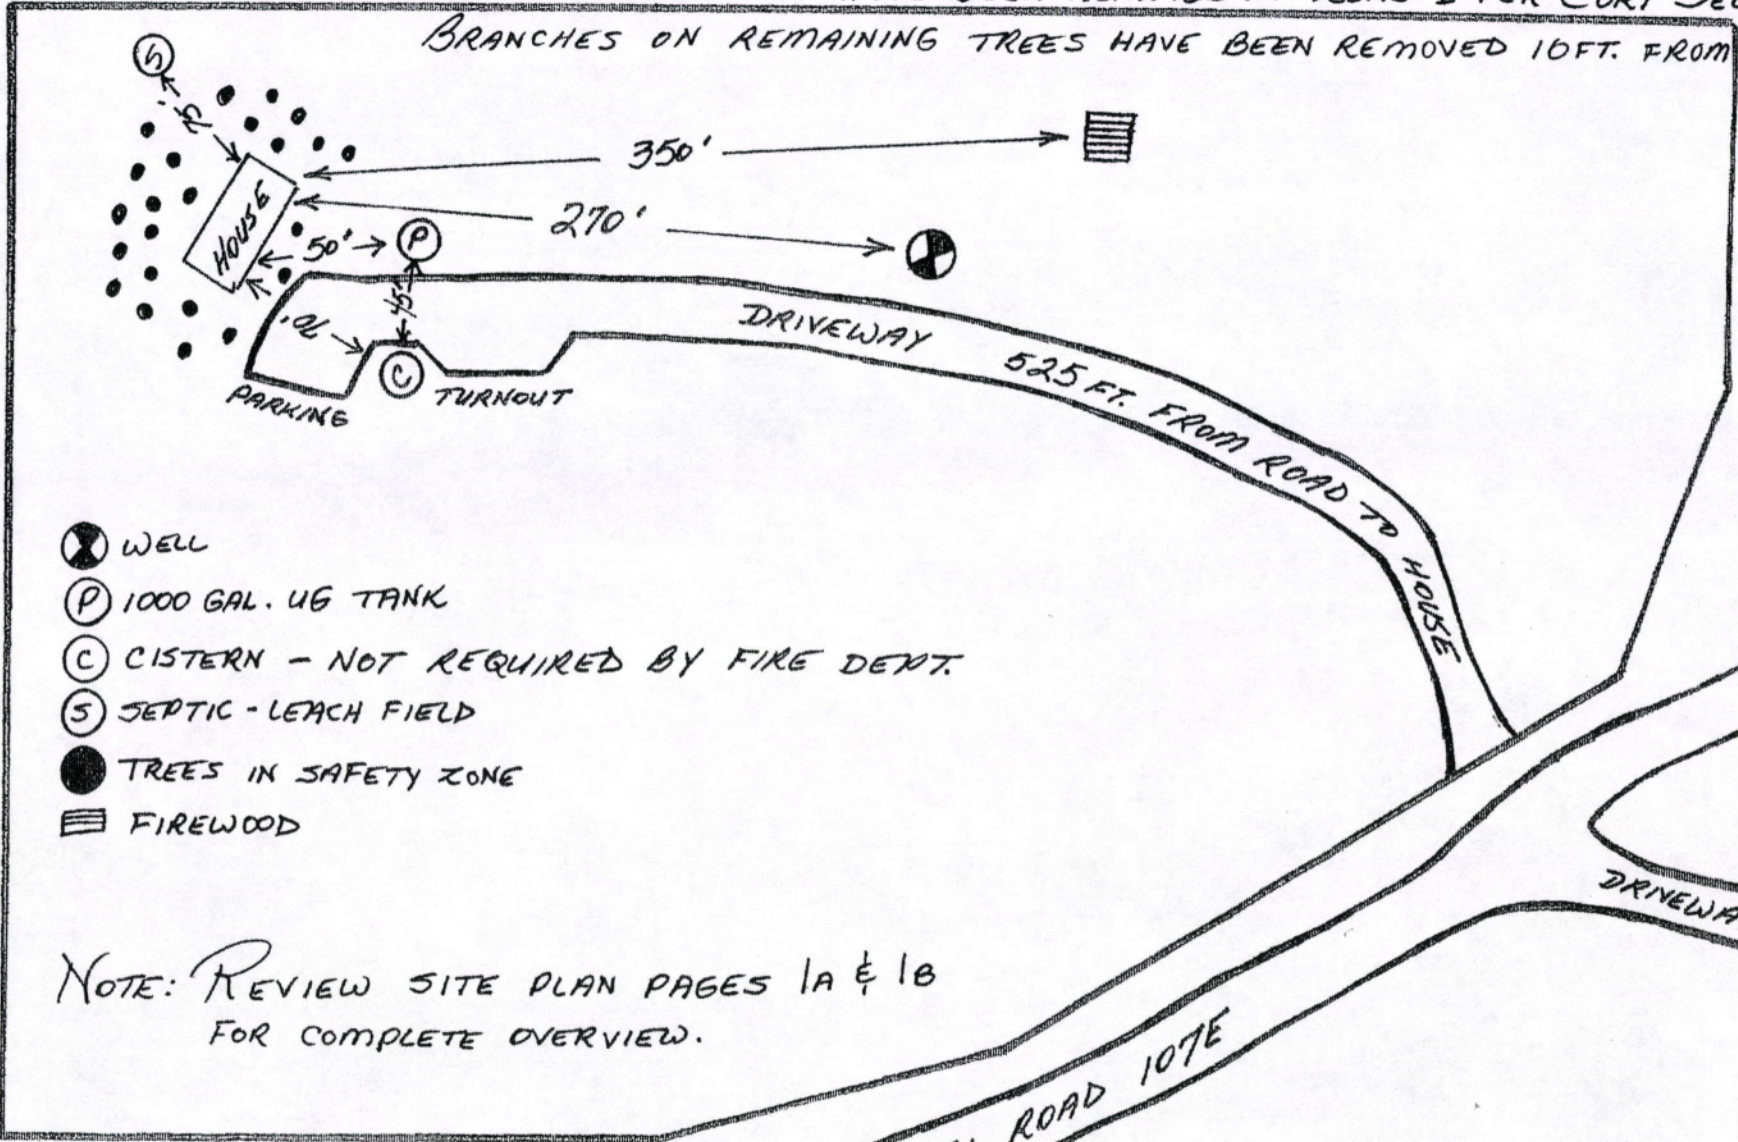 BRANCHES ON REMAINING TREES HAVE BEEN REMOVED 10FT. FROM
S
75'
350'
HOUSE
270'
50'
P
45'
70'
C
PARKING
TURNOUT
DRIVEWAY
525 FT. FROM ROAD TO HOUSE
WELL
P 1000 GAL. UG TANK
C CISTERN - NOT REQUIRED BY FIRE DEPT.
S SEPTIC - LEACH FIELD
TREES IN SAFETY ZONE
FIREWOOD
DRIVEWA
NOTE: REVIEW SITE PLAN PAGES 1A & 1B
FOR COMPLETE OVERVIEW.
ROAD 107E